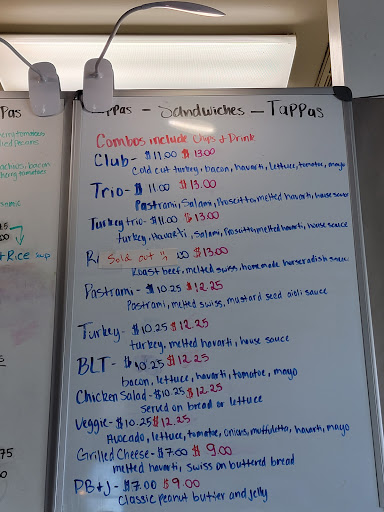 Pas
Rice sup
75
Tappas - Sandwiches - Tappas
Combos include Chips & Drink
Club - $11.00 $13.00
Cold cut turkey, bacon, havarti, lettuce, tomatoe, mayo
Trio - $11.00 $13.00
Pastrami, Salami, Proscuitto, melted havarti, house sauce
Turkey trio - $11.00 $13.00
turkey, Havarti, Salami, Prosuitto, melted havarti, house sauce
R Sold out .00 $13.00
Roast beef, melted swiss, homemade horseradish sauce
Pastrami - $10.25 $12.25
Pastrami, melted swiss, mustard seed aioli sauce
Turkey - $10.25 $12.25
turkey, melted havarti, house sauce
BLT - $10.25 $12.25
bacon, lettuce, havarti, tomatoe, mayo
Chicken Salad - $10.25 $12.25
Served on bread or lettuce
Veggie - $10.25 $12.25
Avocado, lettuce, tomatoe, onions, muffuletta, havarti, mayo
Grilled Cheese - $7.00 $9.00
melted havarti, swiss on buttered bread
PB+J - $7.00 $9.00
Classic peanut butter and jelly